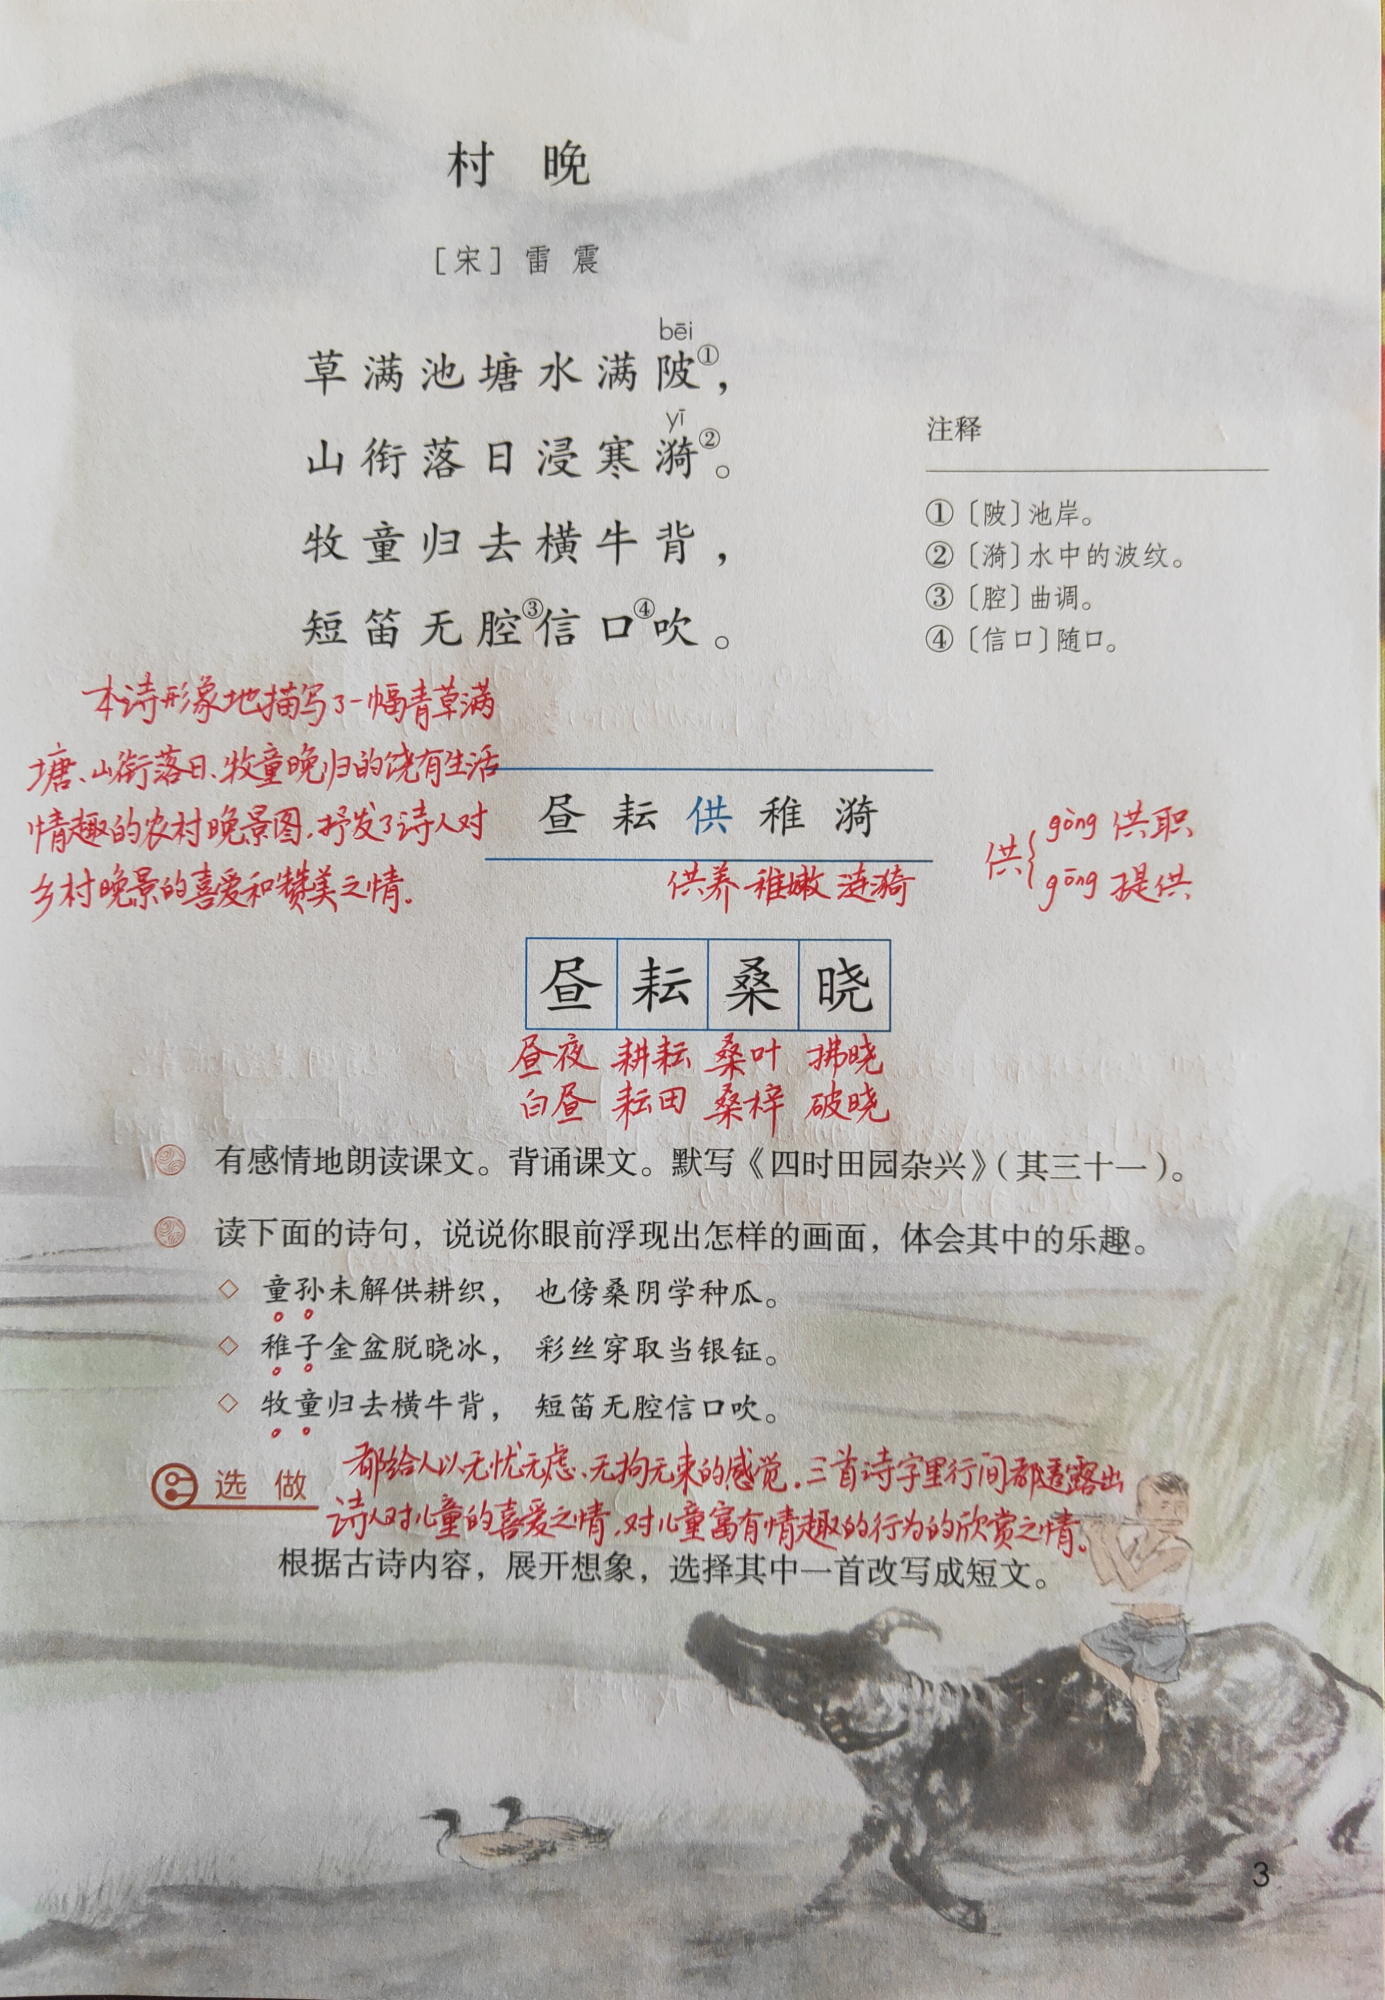 村 晚
［宋］雷 震
bēi
草满池塘水满陂①，
yī
山衔落日浸寒漪②。
牧童归去横牛背，
短笛无腔③信口④吹。
注释
①〔陂〕池岸。
②〔漪〕水中的波纹。
③〔腔〕曲调。
④〔信口〕随口。
本诗形象地描写了一幅青草满
塘、山衔落日、牧童晚归的饶有生活
情趣的农村晚景图，抒发了诗人对
乡村晚景的喜爱和赞美之情。
昼 耘 供 稚 漪
供养 稚嫩 涟漪
供{ gòng 供职
gōng 提供
昼 耘 桑 晓
昼夜 耕耘 桑叶 拂晓
白昼 耘田 桑梓 破晓
有感情地朗读课文。背诵课文。默写《四时田园杂兴》（其三十一）。
读下面的诗句，说说你眼前浮现出怎样的画面，体会其中的乐趣。
◇ 童孙未解供耕织， 也傍桑阴学种瓜。
◇ 稚子金盆脱晓冰， 彩丝穿取当银钲。
◇ 牧童归去横牛背， 短笛无腔信口吹。
都给人以无忧无虑、无拘无束的感觉。三首诗字里行间都透露出
诗人对儿童的喜爱之情，对儿童富有情趣的行为的欣赏之情。
选 做
根据古诗内容，展开想象，选择其中一首改写成短文。
3